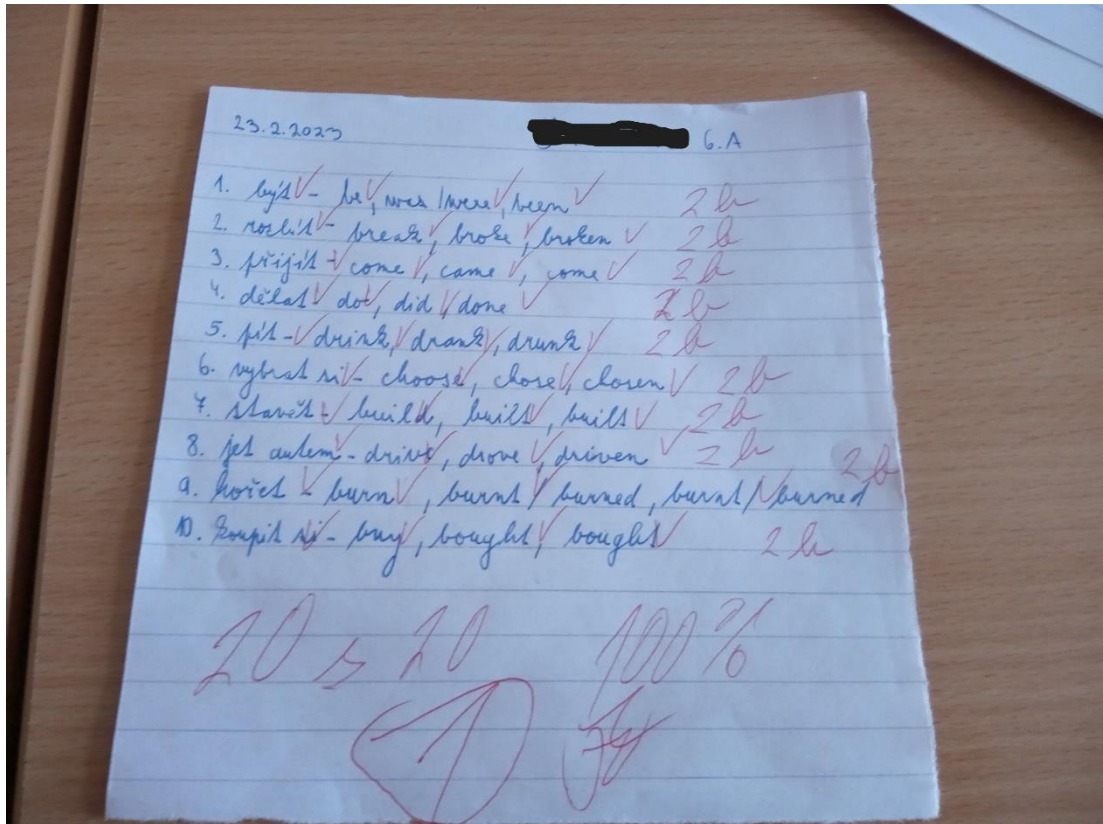 23.2.2023 6.A
1. být - be, was / were, been 2b
2. rozbít - break, broke, broken 2b
3. přijít - come, came, come 2b
4. dělat do, did, done 2b
5. pít - drink, drank, drunk 2b
6. vybrat si - choose, chose, chosen 2b
7. stavět - build, built, built 2b
8. jet autem - drive, drove, driven 2b
9. hořet - burn, burnt / burned, burnt / burned 2b
10. koupit si - buy, bought, bought 2b
20 z 20 100%
1